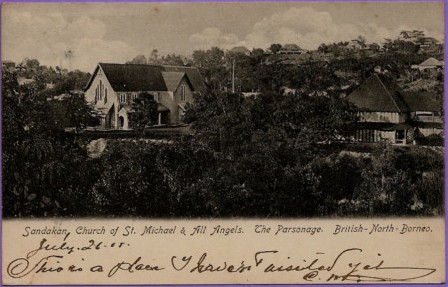 Sandakan, Church of St. Michael & All Angels. The Parsonage. British-North-Borneo.
July. 26. 05.
This is a place I have n't visited yet